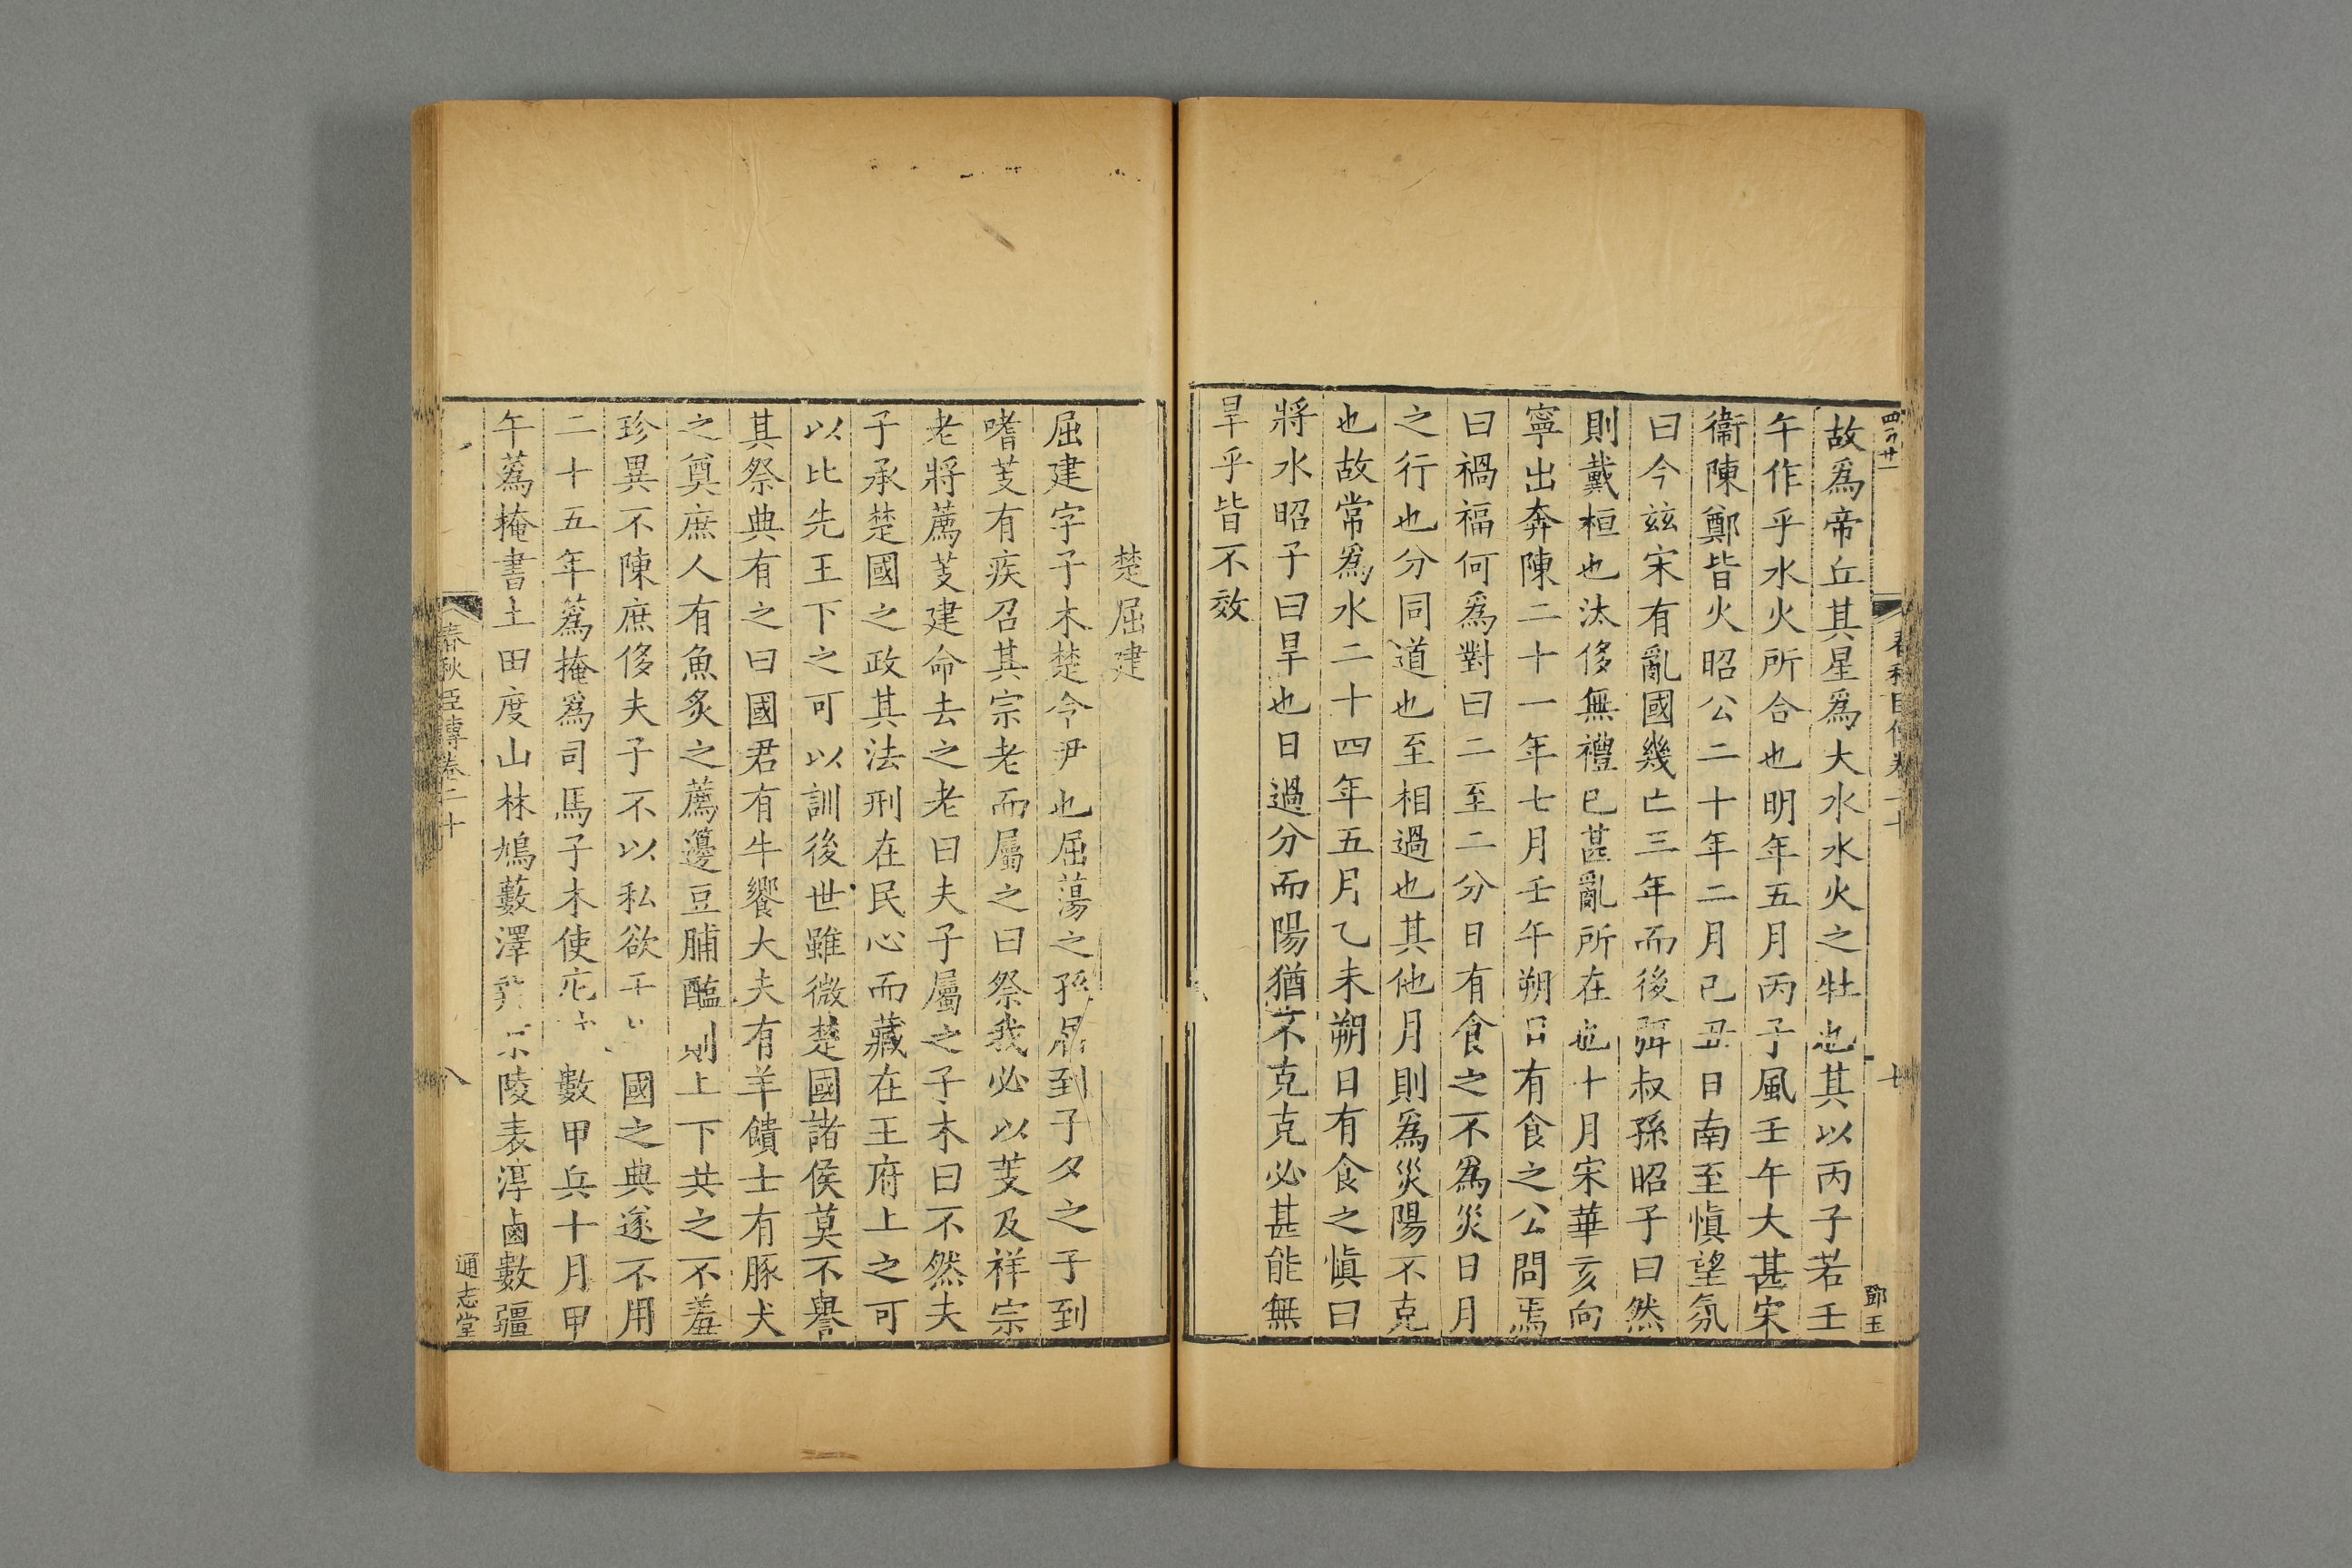 故爲帝丘其星爲大水水火之牡也其以丙子若壬
午作乎水火所合也明年五月丙子風壬午大甚宋
衞陳鄭皆火昭公二十年二月己丑日南至愼望氛
曰今玆宋有亂國幾亡三年而後弭叔孫昭子曰然
則戴桓也汰侈無禮已甚亂所在也十月宋華亥向
寧出奔陳二十一年七月壬午朔日有食之公問焉
曰禍福何爲對曰二至二分日有食之不爲災日月
之行也分同道也至相過也其他月則爲災陽不克
也故常爲水二十四年五月乙未朔日有食之愼曰
將水昭子曰旱也日過分而陽猶不克克必甚能無
旱乎皆不效
鄧玉
楚屈建
屈建字子木楚令尹也屈蕩之孫屈到子夕之子到
嗜芰有疾召其宗老而屬之曰祭我必以芰及祥宗
老將薦芰建命去之老曰夫子屬之子木曰不然夫
子承楚國之政其法刑在民心而藏在王府上之可
以比先王下之可以訓後世雖微楚國諸侯莫不譽
其祭典有之曰國君有牛饗大夫有羊饋士有豚犬
之奠庶人有魚炙之薦籩豆脯醢則上下共之不羞
珍異不陳庶侈夫子不以私欲干國之典遂不用
二十五年蒍掩爲司馬子木使庀數甲兵十月甲
午蒍掩書土田度山林鳩藪澤京陵表淳鹵數疆
春秋臣傳卷二十
八
通志堂